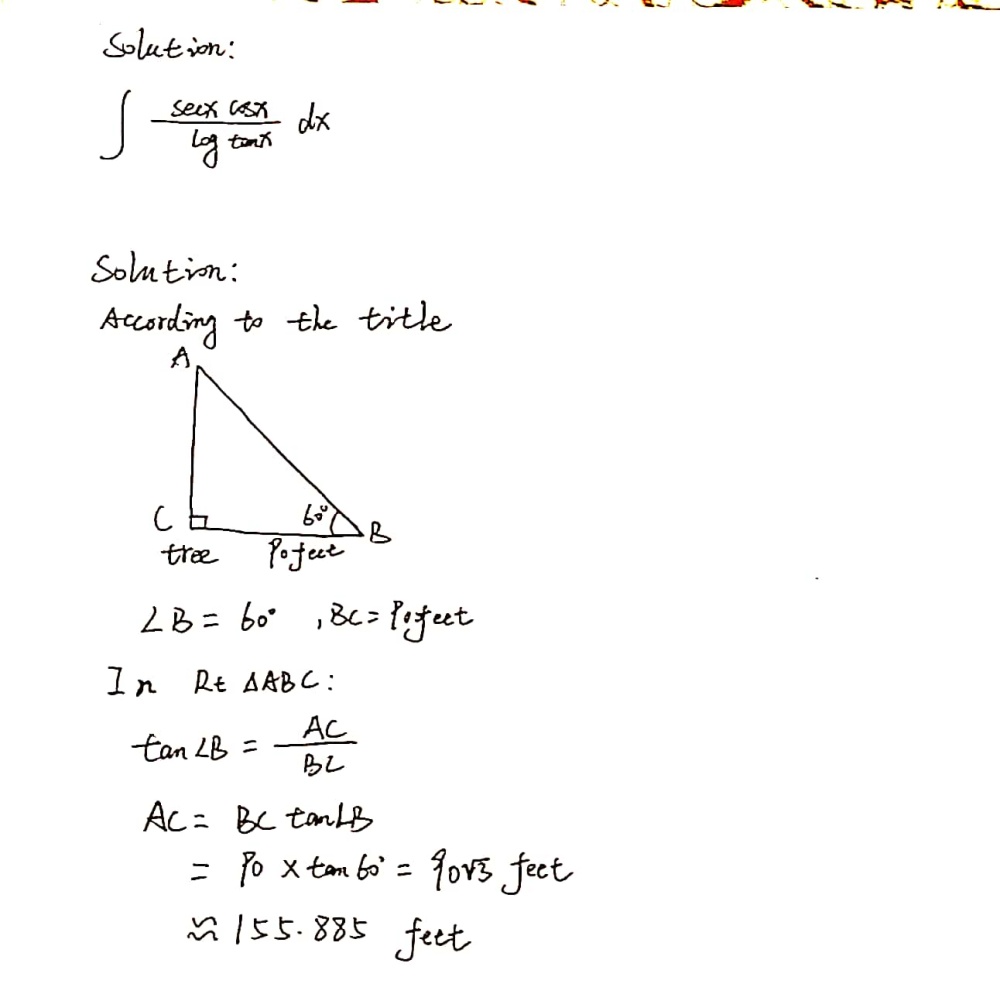 Solution:
∫ secx cosx / log tanx dx
Solution:
According to the title
A
C 60° B
tree 90 feet
∠B = 60° , BC = 90 feet
In Rt △ABC:
tan∠B = AC / BC
AC = BC tan∠B
= 90 × tan 60° = 90√3 feet
≈ 155.885 feet